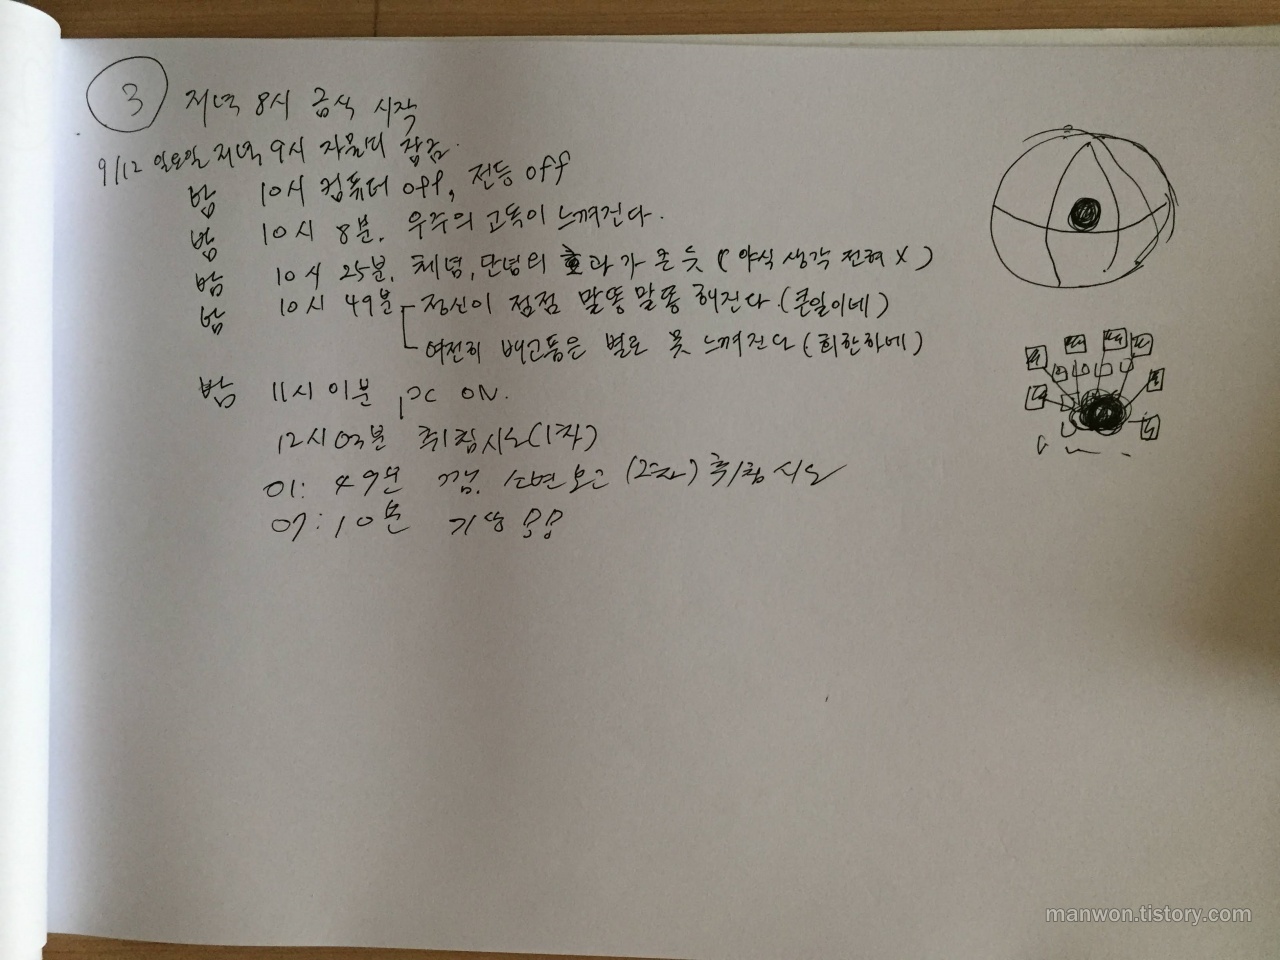 3 저녁 8시 금식 시작
9/12 일요일 저녁 9시 자물쇠 잠금.
밤 10시 컴퓨터 off, 전등 off
밤 10시 8분. 우주의 고독이 느껴진다.
밤 10시 25분. 체념, 단념의 효과가 큰 듯 (야식 생각 전혀 X)
밤 10시 49분 정신이 점점 말똥말똥 해진다. (큰일이네)
여전히 배고픔은 별로 못 느껴진다 (희한하네)
밤 11시 01분 PC ON.
12시 03분 취침시도(1차)
01:49분 깸. 소변 보고 (2차) 취침 시도
07:10분 기상!!
manwon.tistory.com